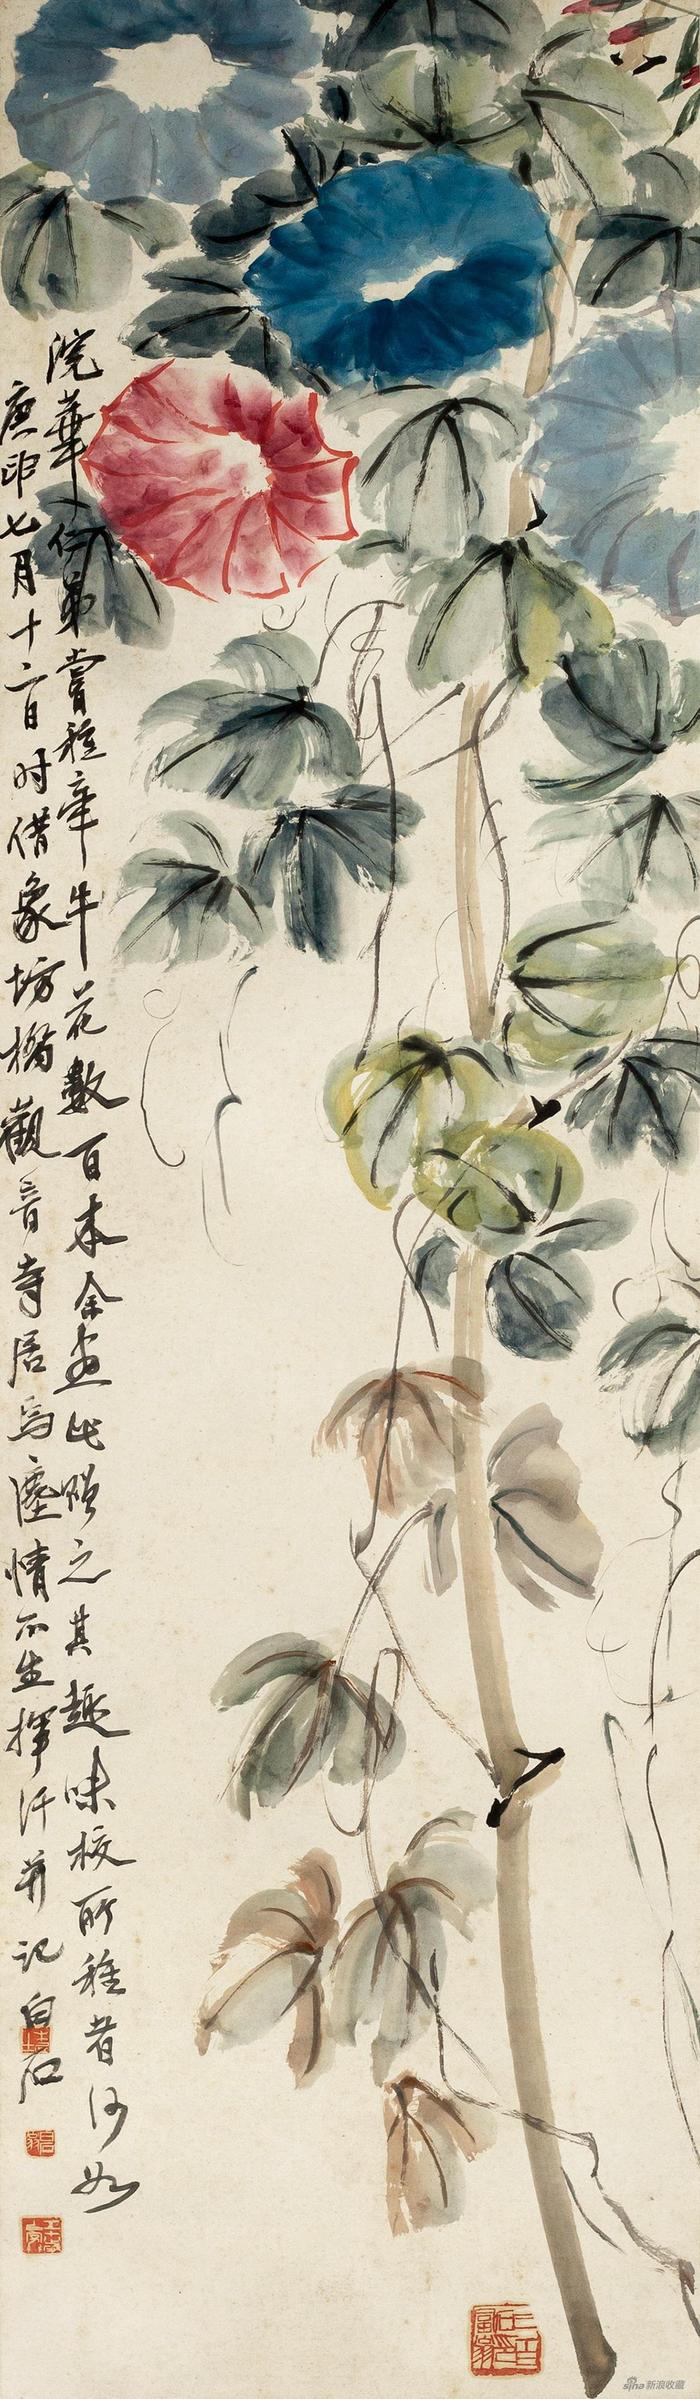 浣華仁弟嘗種牽牛花數百本余畫此贈之其趣味校所種者何如
庚申七月十二日时借象坊橋觀音寺居焉塵情不生揮汗并記白石
sina新浪收藏